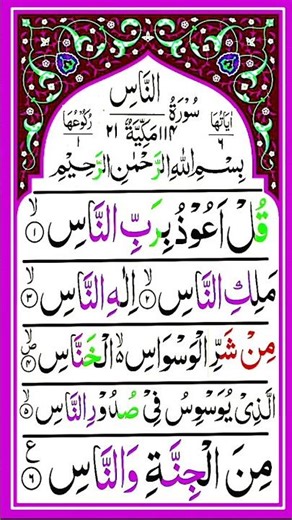 النَّاسِ
اٰيَاتُهَا ٦ سُوْرَةُ ١١٤ مَكِّيَّةٌ ٢١ رُكُوْعُهَا ١
بِسْمِ اللّٰهِ الرَّحْمٰنِ الرَّحِيْمِ
قُلْ اَعُوْذُ بِرَبِّ النَّاسِ ۙ﴿١﴾
مَلِكِ النَّاسِ ۙ﴿٢﴾ اِلٰهِ النَّاسِ ۙ﴿٣﴾
مِنْ شَرِّ الْوَسْوَاسِ ۙ۬ الْخَنَّاسِ ۪ۙ﴿٤﴾
الَّذِيْ يُوَسْوِسُ فِيْ صُدُوْرِ النَّاسِ ۙ﴿٥﴾
مِنَ الْجِنَّةِ وَالنَّاسِ ﴿٦﴾ ع